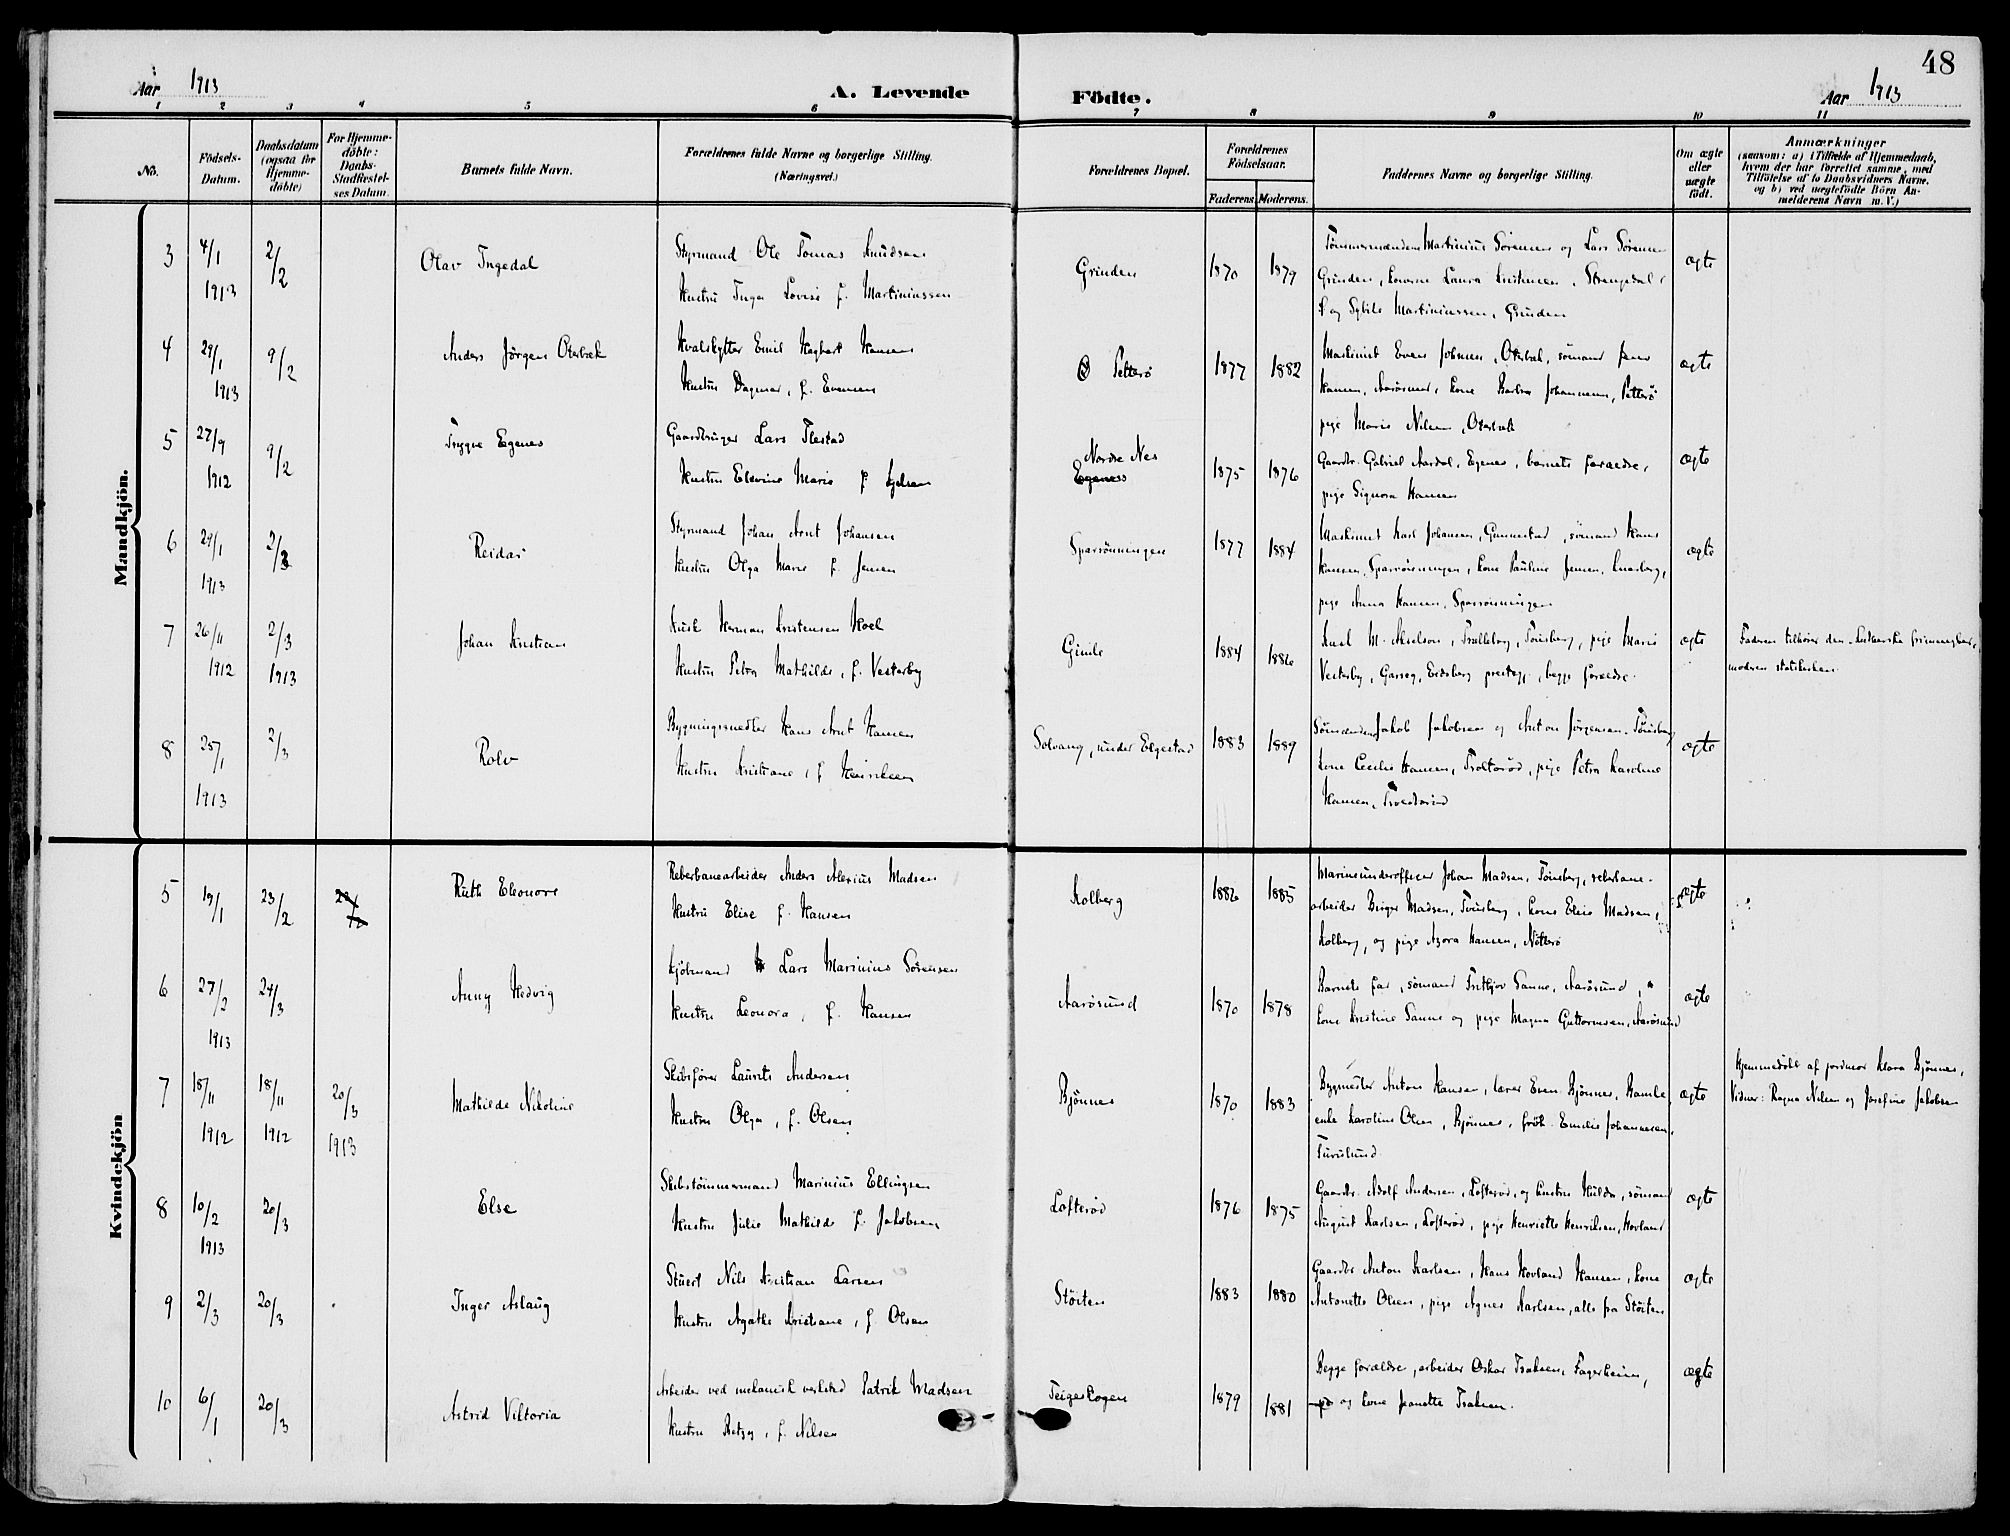 48
Aar 1913
A. Levende
Födte.
Aar 1913
1 2 3 4 5 6 7 8 9 10 11
No.
Födsels-
Datum.
Daabsdatum
(ogsaa for
Hjemme-
döbte)
For Hjemme-
döbte:
Daabs-
Stadfæstel-
ses Datum.
Barnets fulde Navn.
Forældrenes fulde Navne og borgerlige Stilling.
(Næringsvei.)
Forældrenes Bopæl.
Forældrenes
Födselsaar.
Faderens. Moderens.
Faddernes Navne og borgerlige Stilling.
Om ægte
eller
uægte
födt.
Anmærkninger
(saasom: a) i Tilfælde af Hjemmedaab,
hvem der har forrettet samme, med
Tilföielse af to Daabsvidners Navne.
og b) ved uægtefödte Börn An-
melderens Navn m. V.)
Mandkjön.
3 4/1 1913 2/2 Olav Ingedal
Styrmand Ole Tomas Knudsen
Hustru Inga Lovise f. Martiniussen
Grinden 1870 1879
Tømmermændene Martinius Sörensen og Lars Sörensen
Grinden, konerne Laura Kristensen, Strengsdal
og Sylvia Martiniussen, Grinden
ægte
4 29/1 1913 9/2 Anders Jörgen Oterbæk
Hvalskytter Emil Hagbart Hansen
Hustru Dagmar, f. Evensen
Petterö 1877 1882
Maskinist Even Johnsen, Oterbæk, sömand Jens
Hansen, Aarösund, kone Barbra Johannesen, Petterö
pige Marie Nilsen, Oterbæk
ægte
5 27/9 1912 9/2 Trygve Egenes
Gaardbruger Lars Flestad
Hustru Elevine Marie f.
Nordre Nes
Egenes
1875 1876
Gaardbr. Gabriel Aardal, Egenes, barnets forældre,
pige Signora Hansen
ægte
6 29/1 1913 2/3 Reidar
Styrmand Johan Arnt Johansen
Hustru Olga Marie f. Jensen
Sparrönningen 1877 1884
Maskinist Karl Johansen, Gunnestad, sömand Hans
Hansen, Sparrönningen, kone Pauline Jensen,
pige Anna Hansen, Sparrönningen
ægte
7 26/11 1912 2/3 1913 Johan Kristian
Kusk Herman Kristensen Hoel
Hustru Petra Mathilde, f. Vesterby
Gimle 1884 1886
Karl M. Akselson, Trælleborg, Tönsberg, pige Marie
Vesterby, Garseg, Eidsberg prestegj., begge forældre.
ægte
Faderen tilhører den Lutherske frimenighet,
modren statskirken
8 25/1 1913 2/3 Rolv
Bygningssnedker Hans Arnt Hansen
Hustru Kristiane, f. Henriksen
Solvang, under Elgestad 1883 1889
Sömændene Jakob Jakobsen og Anton Jörgensen, Tönsberg
kone Cecilie Hansen, Troltaröd, pige Petra Karoline
Hansen,
ægte
Kvindekjön
5 19/1 23/2 Ruth Eleonore
Reberbanearbeider Anders Alexius Madsen
Hustru Elise f. Hansen
Kolberg 1886 1885
Marineunderofficer Johan Madsen, Tönsberg, reberbane-
arbeider Birger Madsen, Tönsberg, kone Elise Madsen,
Kolberg, og pige Azora Hansen, Nötterö
ægte
6 27/2 1913 24/3 Anny Hedvig
Kjöbmand Lars Marinius Sörensen
Hustru Leonora, f. Hansen
Aarösund 1870 1878
Barnets far, sömand Fritjov Sanne, Aarösund,
kone Kristine Sanne og pige Magna Guttormsen, Aarösund
ægte
7 18/11 1912 18/11 1912 20/3 1913 Mathilde Nikoline
Skibsförer Laurits Andersen
Hustru Olga, f. Olsen
Bjönnes 1870 1883
Bygmester Anton Hansen, lærer Even Bjönnes, Hamle,
enke Karoline Olsen, Bjönnes, frök. Emilie Johannesen,
Furulund
ægte
Hjemmedöbt af jordmor Klara Bjönnes,
Vidner: Ragna Nilsen og Josefine Jakobsen
8 10/2 1913 20/3 Else
Skibstömmermand Marinius Ellingsen
Hustru Julie Mathilde f. Jakobsen
Lofteröd 1876 1875
Gaardbr. Adolf Andersen, Lofteröd, og hustru Hulda, sömand
August Karlsen, Lofteröd, pige Henriette Henriksen, Hovland
ægte
9 2/3 20/3 Inger Aslaug
Stuert Nils Kristian Larsen
Hustru Agathe Kristiane, f. Olsen
Stöiten 1883 1880
Gaardbr Anton Karlsen, Hans Hovland Hansen, kone
Antonette Olsen, pige Agnes Karlsen, alle fra Stöiten
ægte
10 6/1 20/3 Astrid Viktoria
Arbeider ved mekanisk verksted Patrik Madsen
Hustru Betzy, f. Nilsen
Teigeskogen 1879 1881
Begge forældre, arbeider Oskar Isaksen, Fagerheim,
og kone Jeanette Isaksen.
ægte